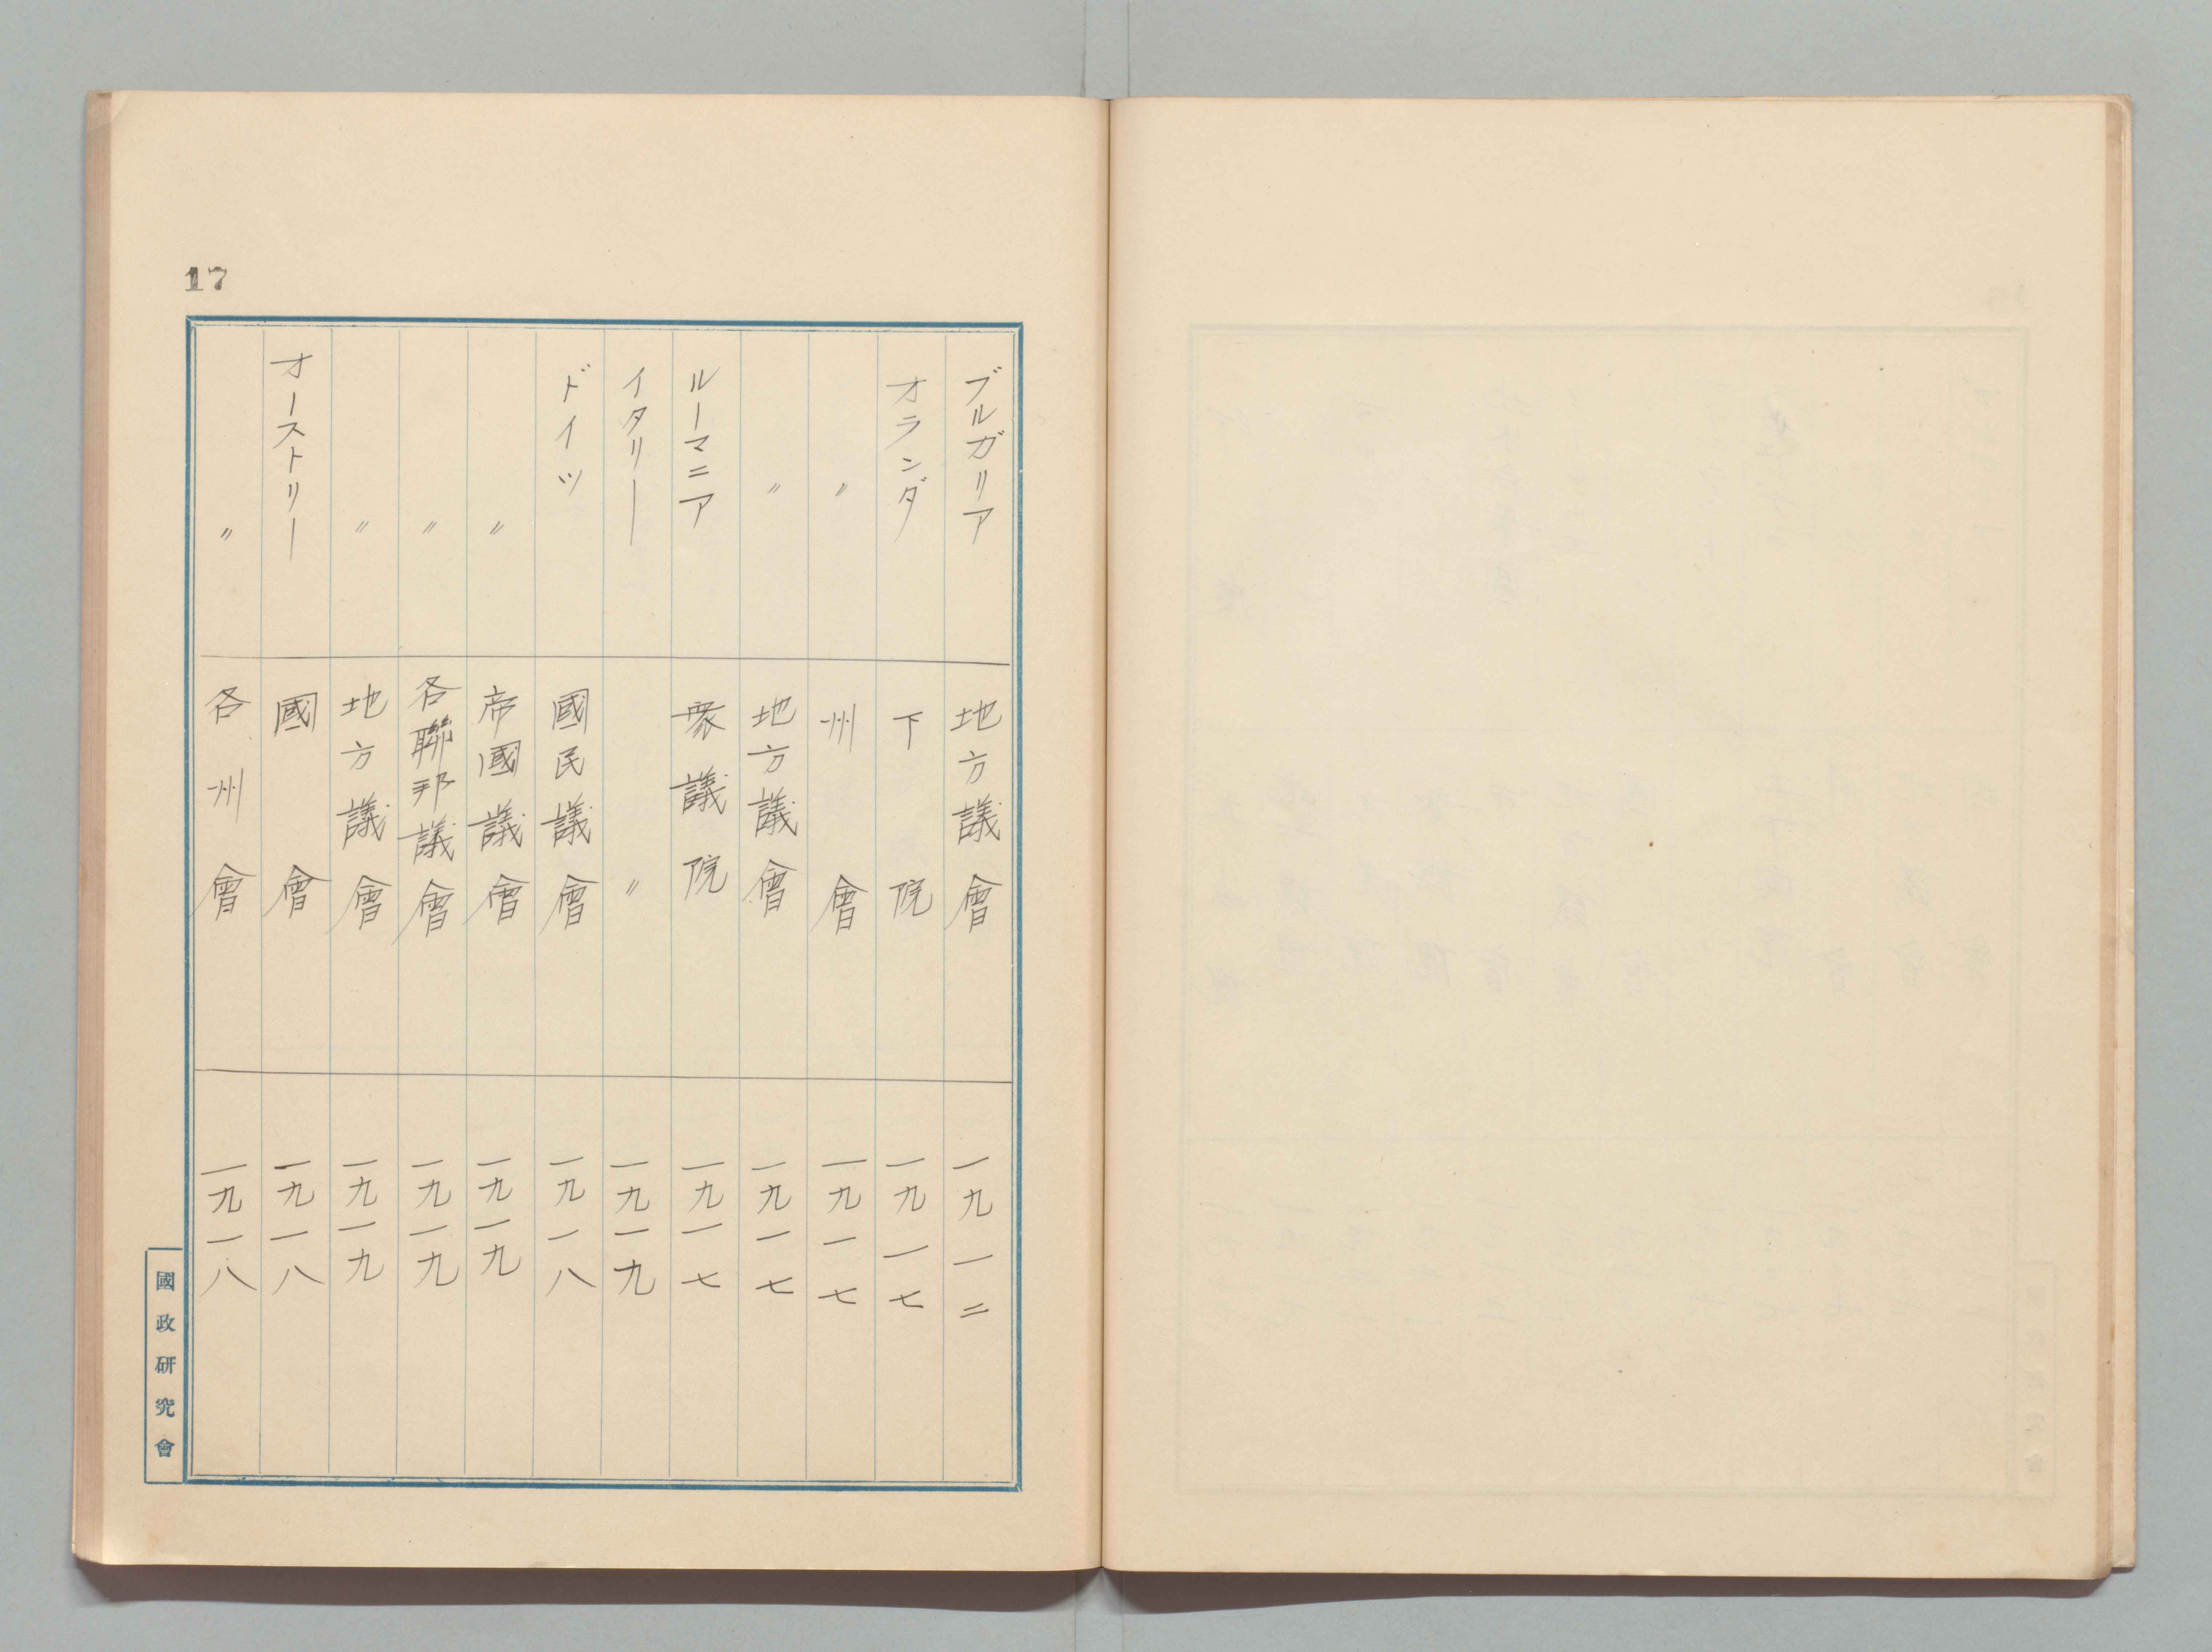 17
ブルガリア 地方議會 一九一二
オランダ 下院 一九一七
〃 州會 一九一七
〃 地方議會 一九一七
ルーマニア 衆議院 一九一七
イタリー 〃 一九一九
ドイツ 國民議會 一九一八
〃 帝國議會 一九一九
〃 各聯邦議會 一九一九
〃 地方議會 一九一九
オーストリー 國會 一九一八
〃 各州會 一九一八
國政研究會